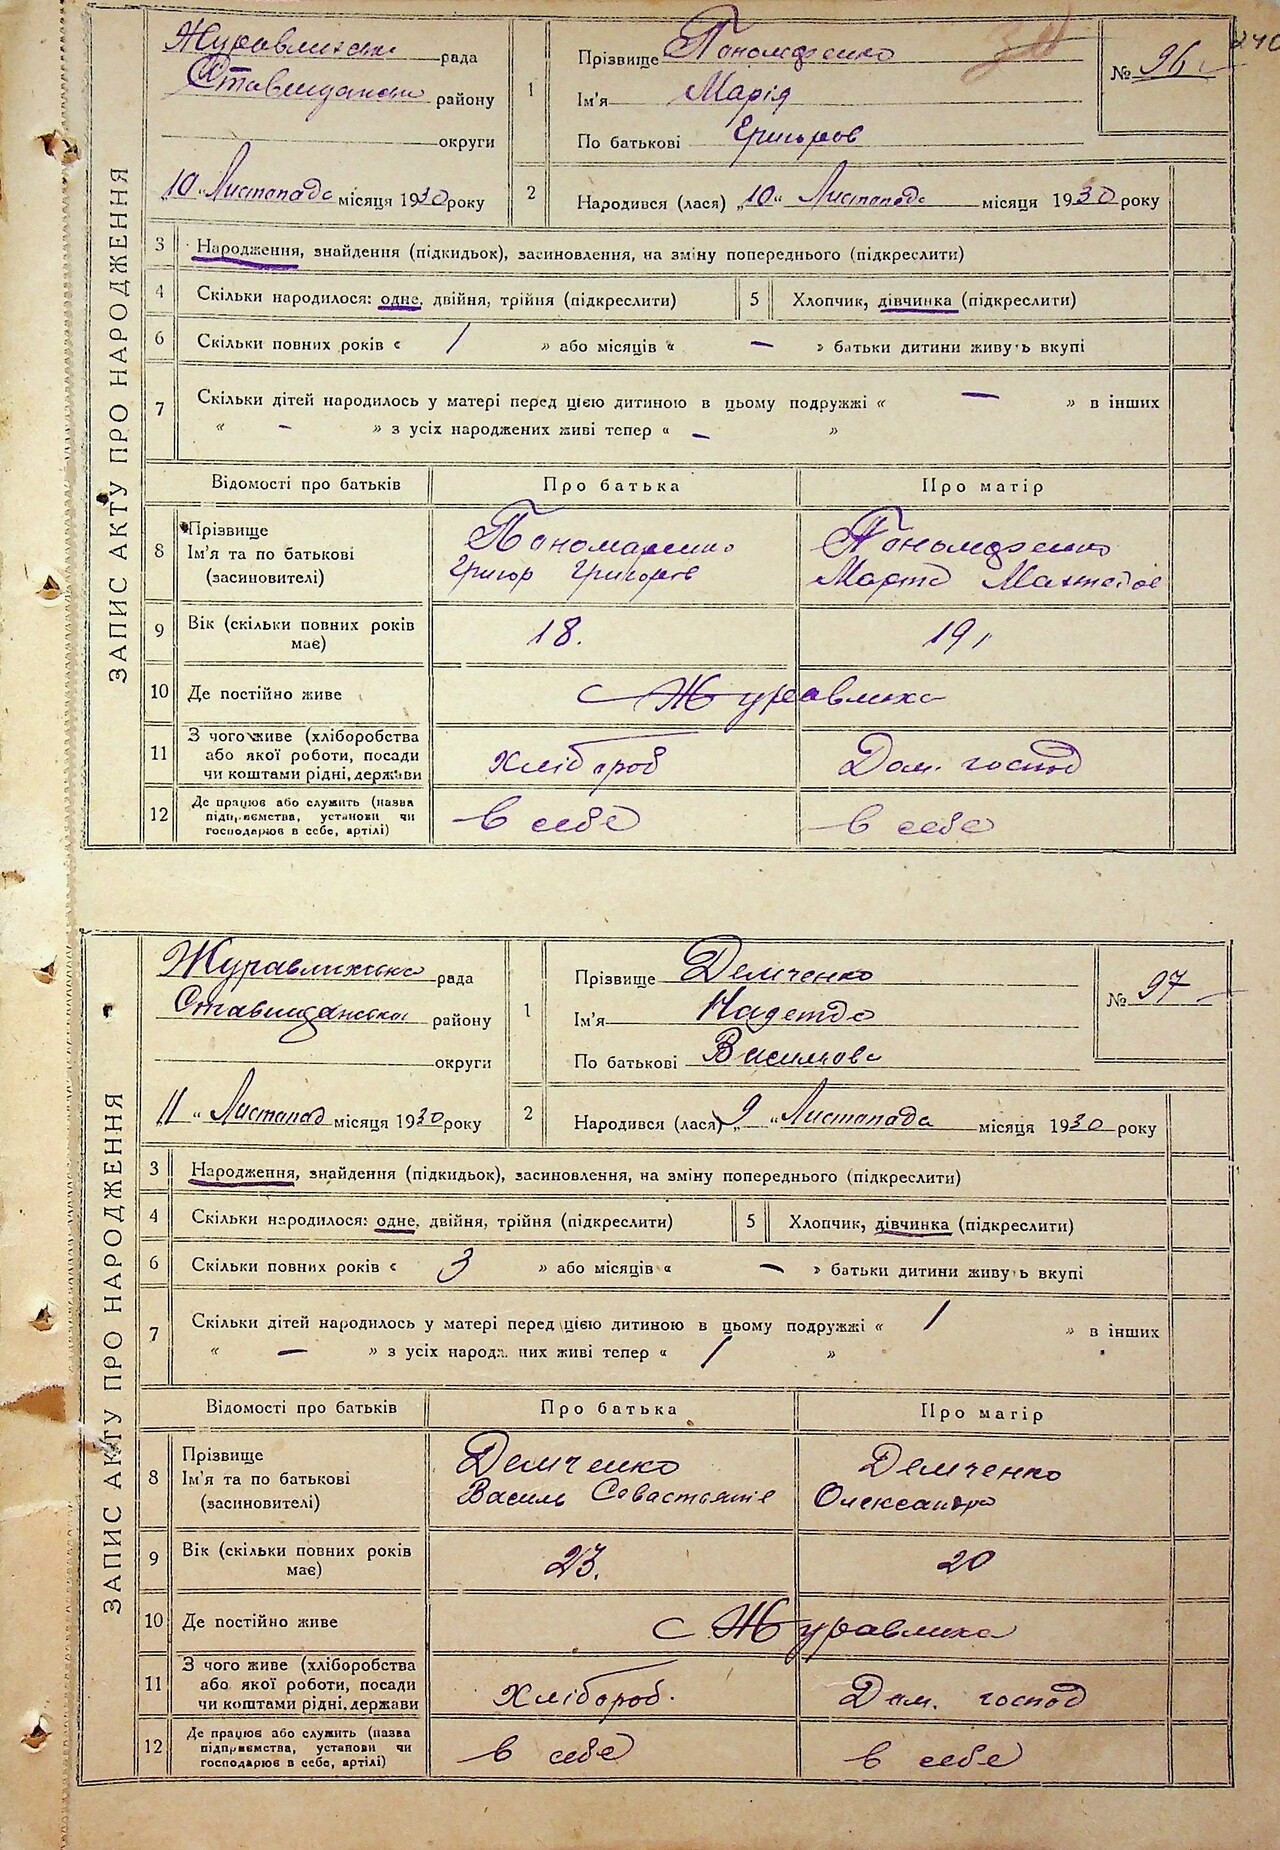 ЗАПИС АКТУ ПРО НАРОДЖЕННЯ
Журавлиська рада
Ставищанськ району
округи
1
Прізвище Пономаренко
Ім'я Марія
По батькові Григоров
№ 96
240
10 „ Листопада місяця 1930 року
2
Народився (лася) „10 “ Листопада місяця 1930 року
3 Народження, знайдення (підкидьок), засиновлення, на зміну попереднього (підкреслити)
4 Скільки народилося: одне, двійня, трійня (підкреслити) 5 Хлопчик, дівчинка (підкреслити)
6 Скільки повних років « 1 » або місяців « — » батьки дитини живуть вкупі
7 Скільки дітей народилось у матері перед цією дитиною в цьому подружжі « — » в інших
« - » з усіх народжених живі тепер « - »
Відомості про батьків Про батька Про матір
8 Прізвище Ім'я та по батькові (засиновителі)
Пономаренко Григор Григоров
Пономаренко Марта
9 Вік (скільки повних років має) 18. 19,
10 Де постійно живе с Журавлиха
11 З чого живе (хліборобства або якої роботи, посади чи коштами рідні, держави Хлібороб Дом. господ
12 Де працює або служить (назва підприємства, установи чи господарює в себе, артілі) в себе в себе
ЗАПИС АКТУ ПРО НАРОДЖЕННЯ
Журавлиська рада
Ставищанська району
округи
1
Прізвище Демченко
Ім'я Надежда
По батькові Василова
№ 97
11 „ Листопад місяця 1930 року
2
Народився (лася) „ 9 “ Листопада місяця 1930 року
3 Народження, знайдення (підкидьок), засиновлення, на зміну попереднього (підкреслити)
4 Скільки народилося: одне, двійня, трійня (підкреслити) 5 Хлопчик, дівчинка (підкреслити)
6 Скільки повних років « 3 » або місяців « — » батьки дитини живуть вкупі
7 Скільки дітей народилось у матері перед цією дитиною в цьому подружжі « 1 » в інших
« — » з усіх народжених живі тепер « 1 »
Відомості про батьків Про батька Про матір
8 Прізвище Ім'я та по батькові (засиновителі)
Демченко Василь
Демченко Олександра
9 Вік (скільки повних років має) 23. 20
10 Де постійно живе с Журавлиха
11 З чого живе (хліборобства або якої роботи, посади чи коштами рідні, держави Хлібороб. Дом. господ
12 Де працює або служить (назва підприємства, установи чи господарює в себе, артілі) в себе в себе